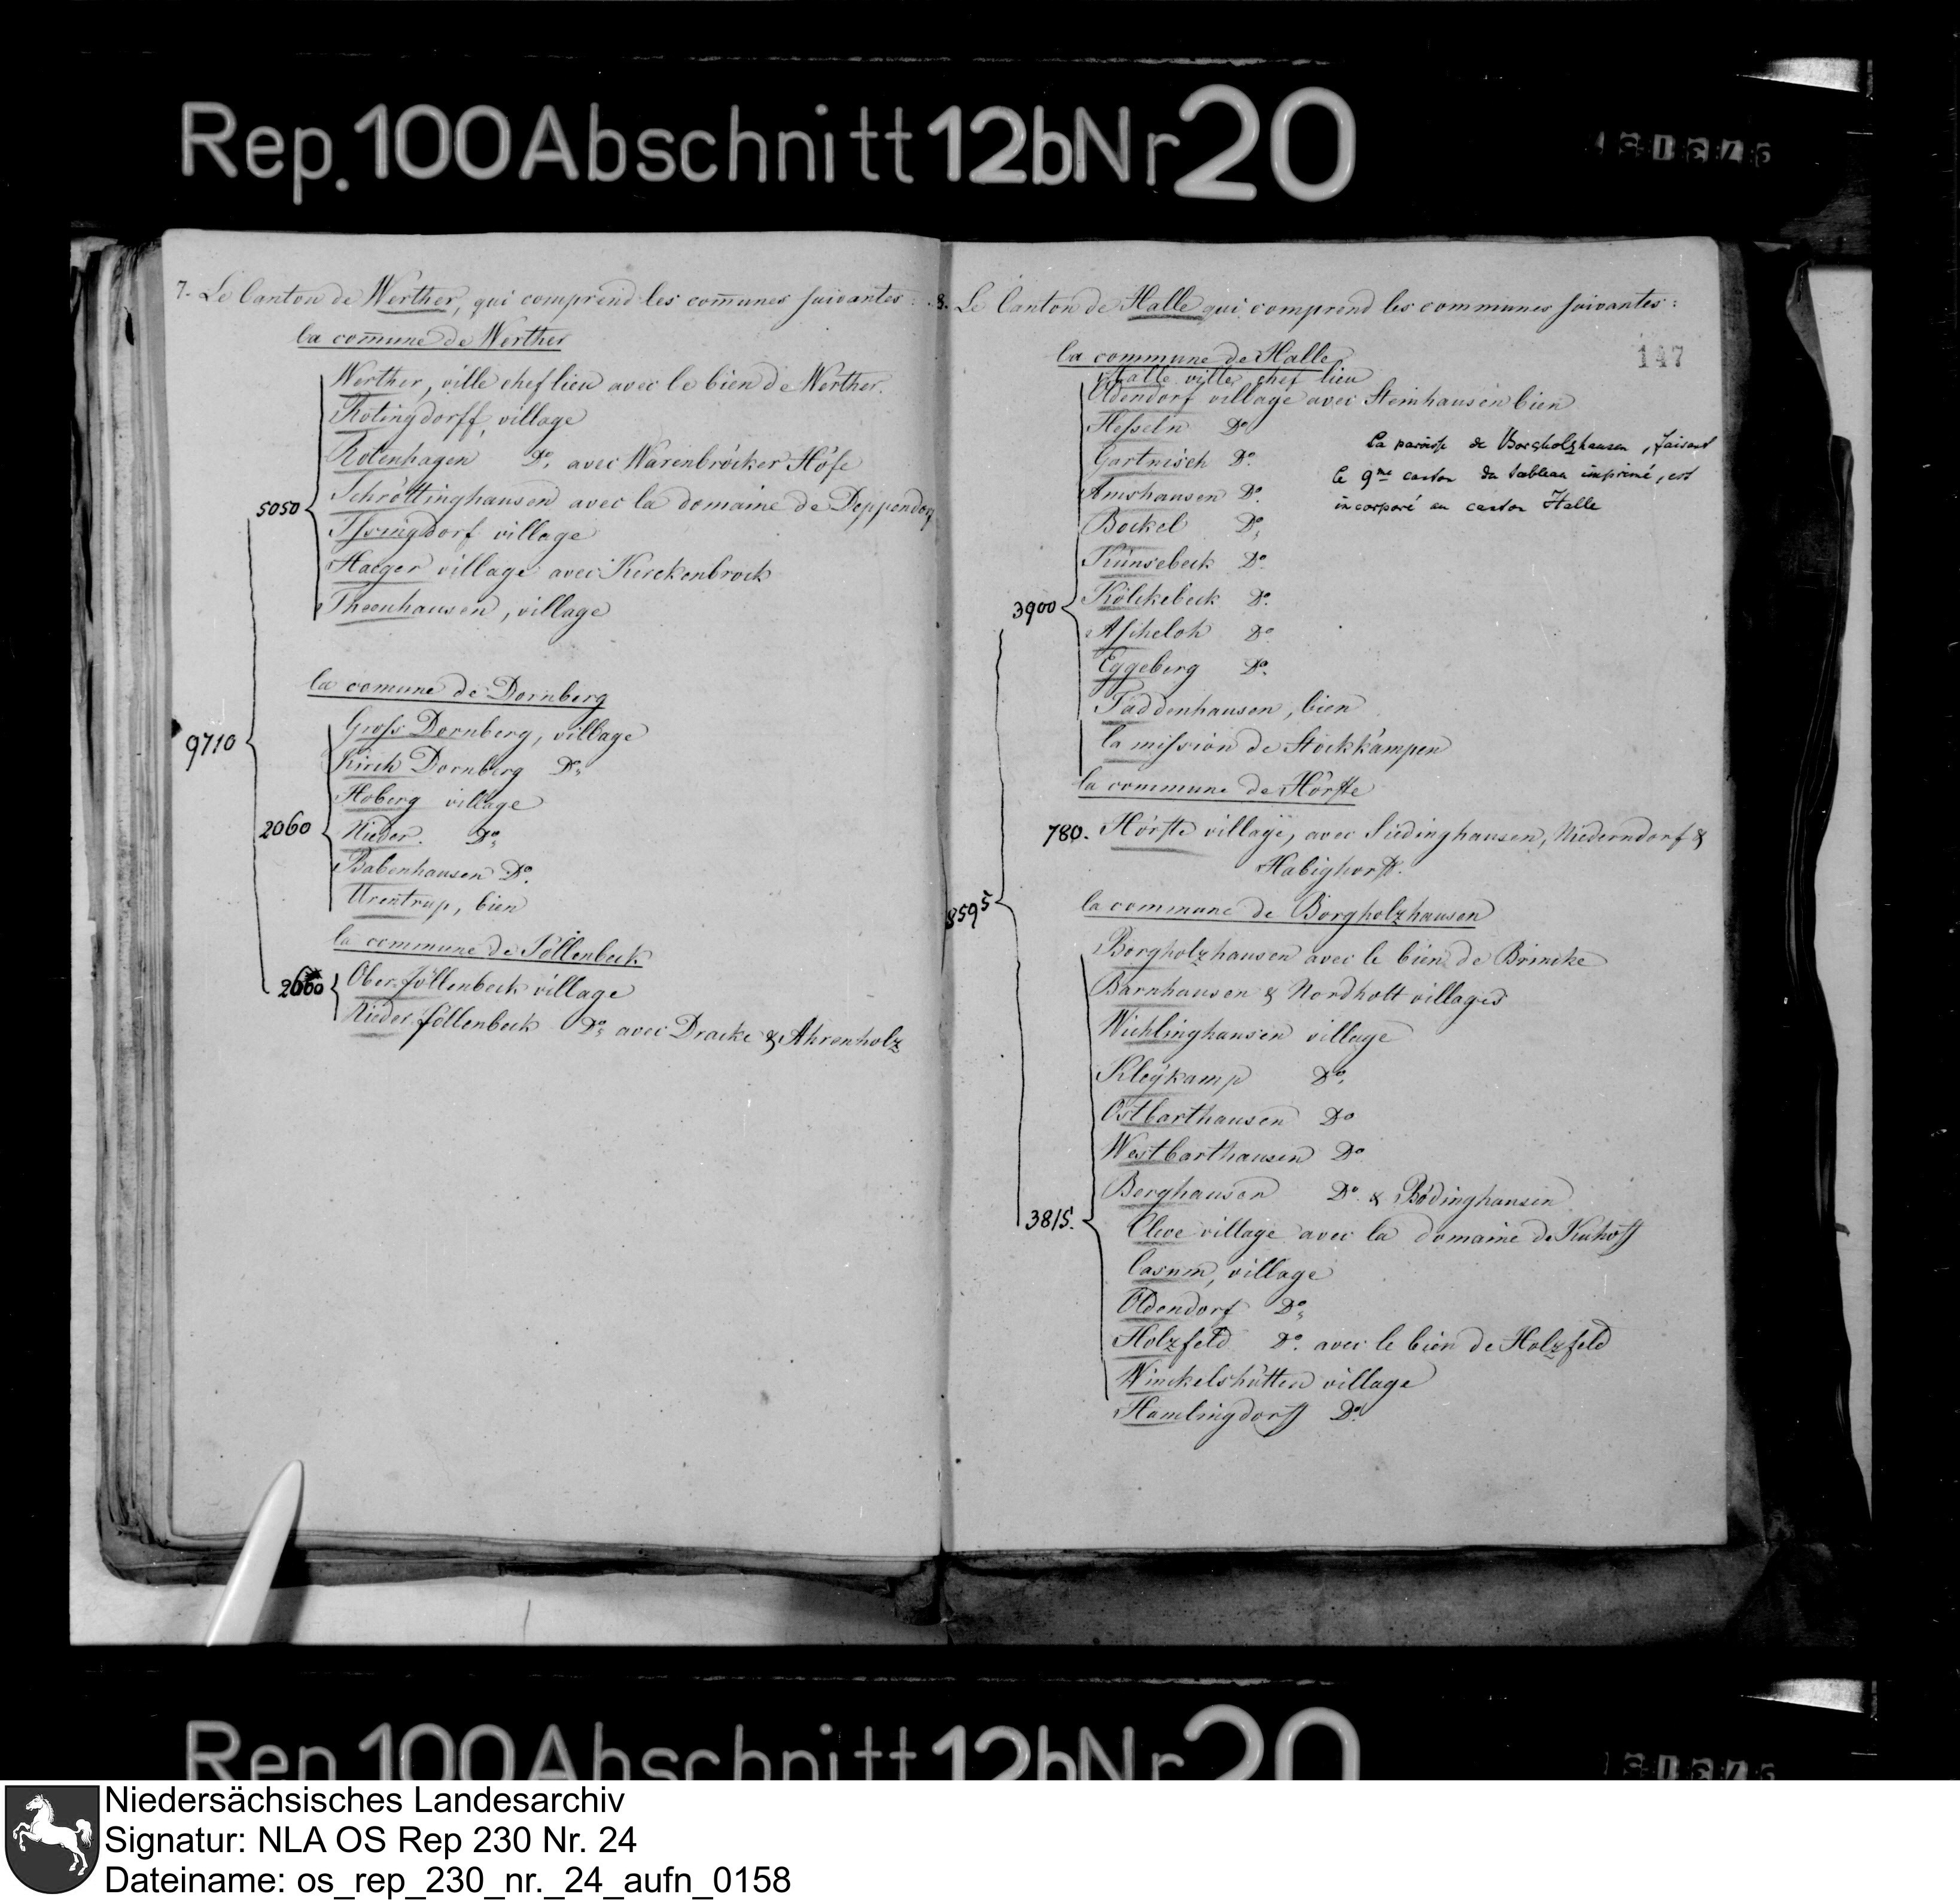 Rep. 100 Abschnitt 12b Nr 20
7. Le Canton de Werther, qui comprend les com̅unes suivantes:
la com̅une de Werther
Werther, ville chef lieu avec le bien de Werther.
Rotingdorff, village
Rotenhagen Do. avec Warenbröcker Höfe
Schröttinghausen avec la domaine de Deppendorf
5050
Isingdorf village
Haeger village avec Kerckenbrock
Theenhausen, village
la comune de Dornberg
Gross Dornberg, village
9710
Kirch Dornberg Do.
Hoberg village
2060
Nieder. Do.
Babenhausen Do.
Urentrup, bien
la commune de Jöllenbeck
Ober Jöllenbeck village
Nieder Jöllenbeck Do. avec Dracke & Ahrenholz
8. Le Canton de Halle qui comprend les communes suivantes:
147
la commune de Halle
Halle ville chef lieu
Oldendorf village avec Steinhausen bien
Hesseln Do
Gartnisch Do.
Amshausen Do.
Bockel Do.
Künsebeck Do.
3900
Kölckebeck Do.
Ascheloh Do
Eggeberg Do.
Taddenhausen, bien
la mission de Stockkämpen
La paroisse de Borgholzhausen, faisant
le 9me canton du tableau imprimé, est
incorporé au canton Halle
la commune de Hörste
780. Hörste village, avec Siedinghausen, Niederndorf &
Habighorst.
8595
la commune de Borgholzhausen
Borgholzhausen avec le bien de Brincke
Barnhausen & Nordholt villages
Wichlinghausen village
Kleÿkamp Do.
Ostbarthausen Do
Westbarthausen Do
Berghausen Do. & Bödinghausen
3815.
Cleve village avec la domaine de Kuhoff
Casum, village
Oldendorf Do.
Holzfeld Do. avec le bien de Holzfeld
Winckelshütten village
Hamlingdorff Do.
Rep. 100 Abschnitt 12b Nr 20
Niedersächsisches Landesarchiv
Signatur: NLA OS Rep 230 Nr. 24
Dateiname: os_rep_230_nr._24_aufn_0158